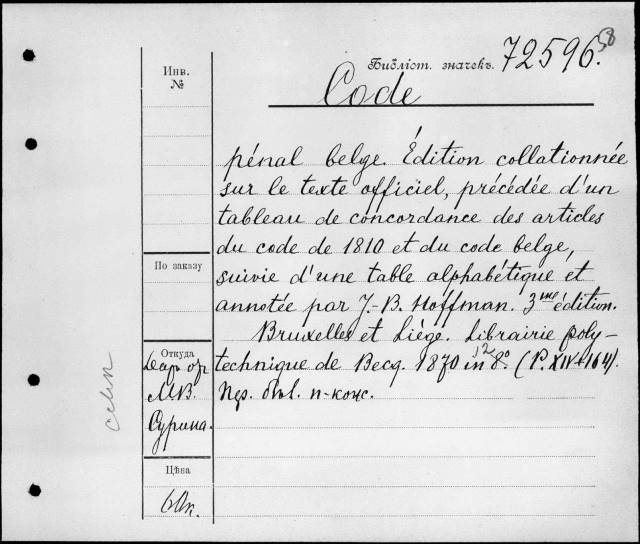 Библіот. значекъ. 72596.
58
Инв.
№
Code
pénal belge. Édition collationnée
sur le texte officiel, précédée d'un
tableau de concordance des articles
du code de 1810 et du code belge,
По заказу
suivie d'une table alphabétique et
annotée par J.-B. Hoffman. 3me édition.
Bruxelles et Liége. Librairie poly-
Откуда
technique de Decq. 1870 in 8º. (P. XIV+164).
12
Даръ от
М.В.
Сурина.
Пер. бѣл. п-кож.
Цѣна
60к.